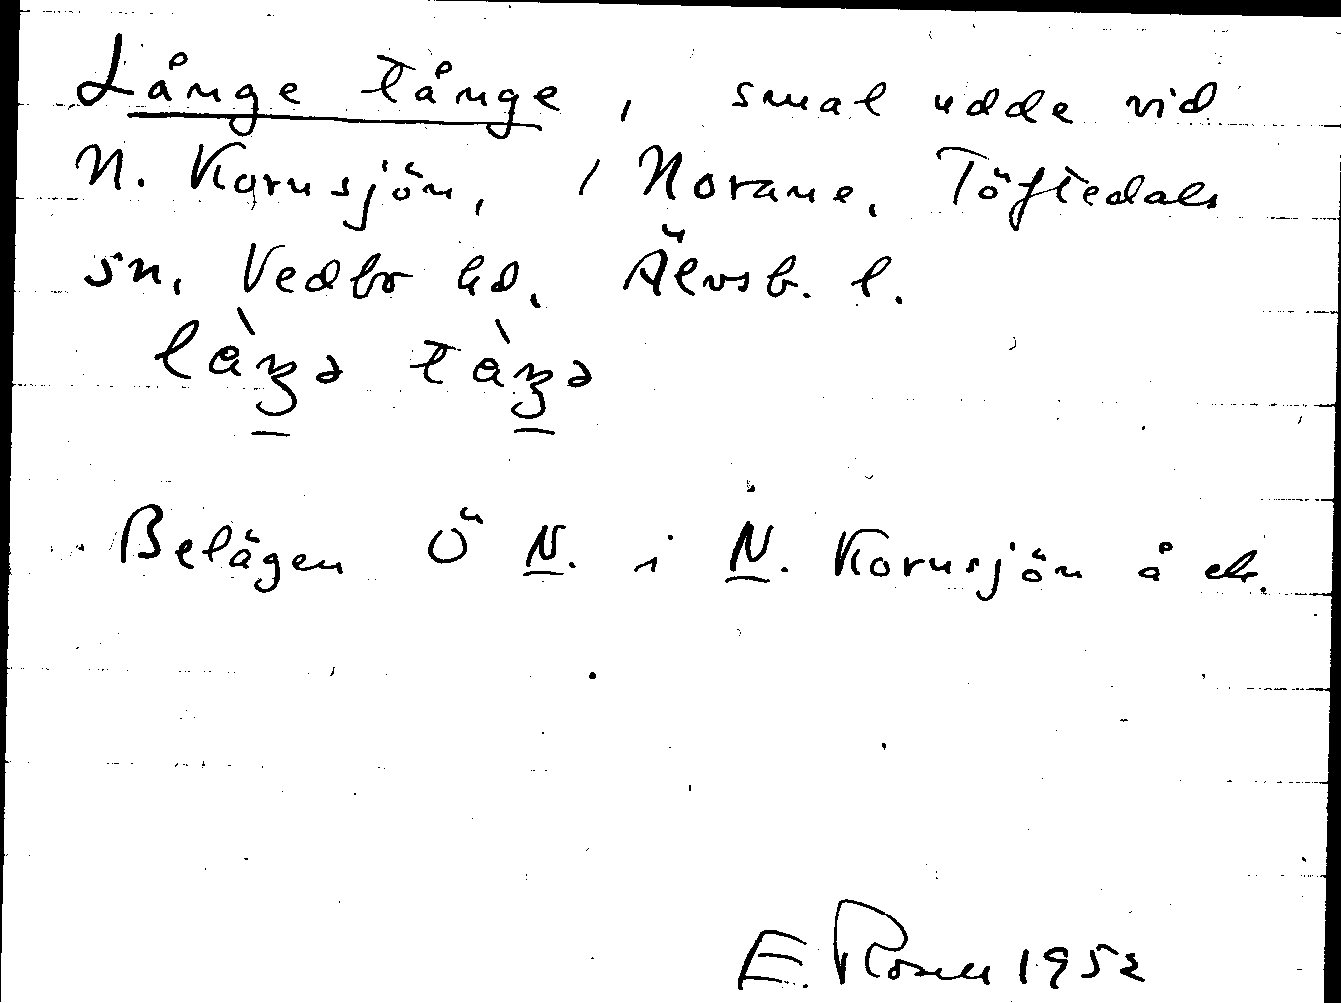 Långe tånge, smal udde vid
N. Kornsjön, 1 Norane, Töftedals
sn, Vedbo hd, Älvsb. l.
Belägen Ö N. i N. Kornsjön å ek.
E. Rosell 1952